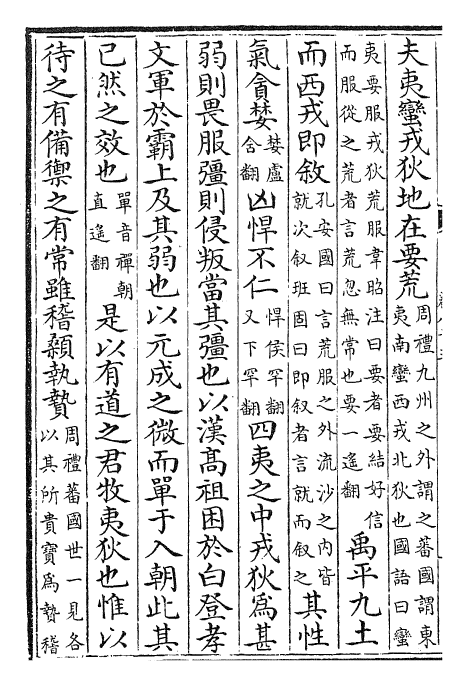 夫夷蠻戎狄地在要荒周禮九州之外謂之蕃國謂東
夷南蠻西戎北狄也國語曰蠻
夷要服戎狄荒服韋昭注曰要者要結好信
而服從之荒者言荒忽無常也要一遙翻
禹平九土
而西戎即敘孔安國曰言荒服之外流沙之內皆
就次叙班固曰即叙者言就而叙之
其性
氣貪婪婪盧
含翻
凶悍不仁悍侯罕翻
又下罕翻
四夷之中戎狄爲甚
弱則畏服彊則侵叛當其彊也以漢高祖困於白登孝
文軍於霸上及其弱也以元成之微而單于入朝此其
已然之效也單音禪朝
直遙翻
是以有道之君牧夷狄也惟以
待之有備禦之有常雖稽顙執贄周禮蕃國世一見各
以其所貴寶爲贄稽